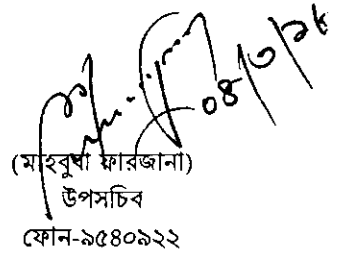 ০৪/৩/১৮
(মাহবুবা ফারজানা)
উপসচিব
ফোন-৯৫৪০৯২২